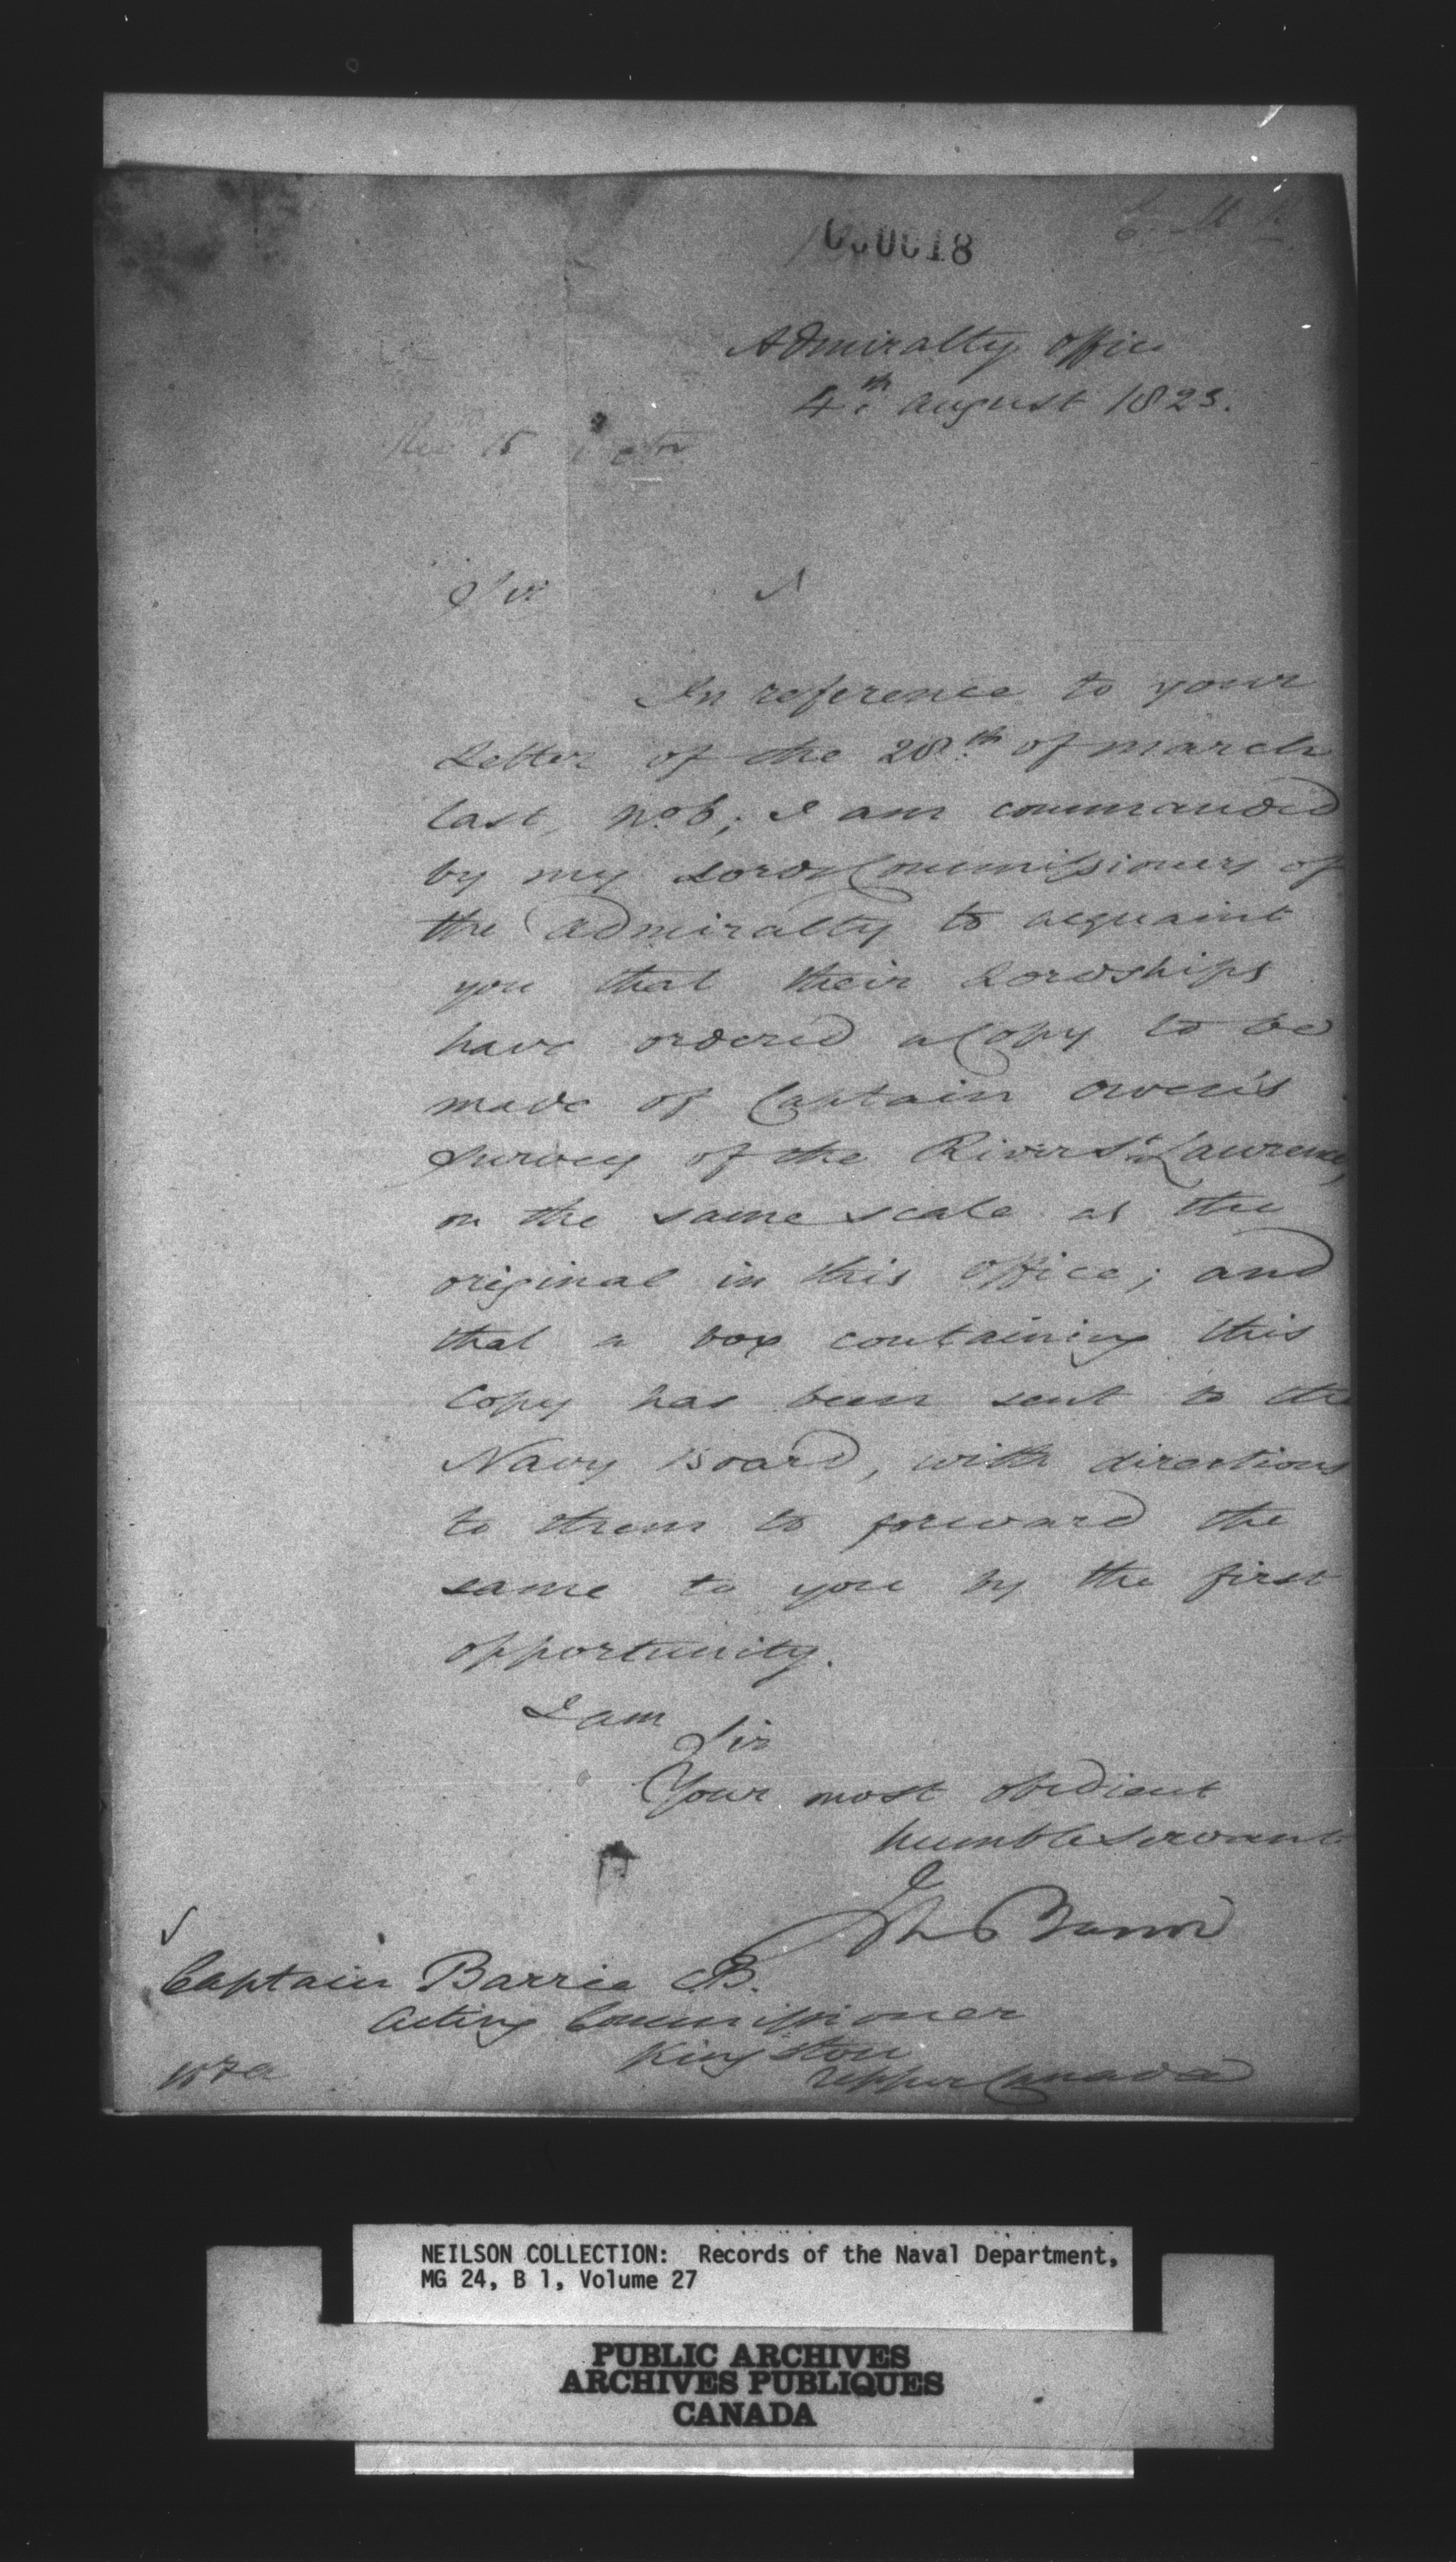 000018
Admiralty Office
4th August 1823.
Sir
In reference to your
Letter of the 28th of March
last, No 6; I am commanded
by my Lords Commissioners of
the Admiralty to acquaint
you that their Lordships
have ordered a Copy to be
made of Captain Owen's
Survey of the River St Lawrence,
on the same scale as the
original in this Office; and
that a box containing this
Copy has been sent to the
Navy Board, with directions
to them to forward the
same to you by the first
opportunity.
I am
Sir
Your most obedient
humble servant
Jn Barrow
Captain Barrie CB.
Acting Commissioner
Kingston
Upper Canada
NEILSON COLLECTION: Records of the Naval Department,
MG 24, B 1, Volume 27
PUBLIC ARCHIVES
ARCHIVES PUBLIQUES
CANADA